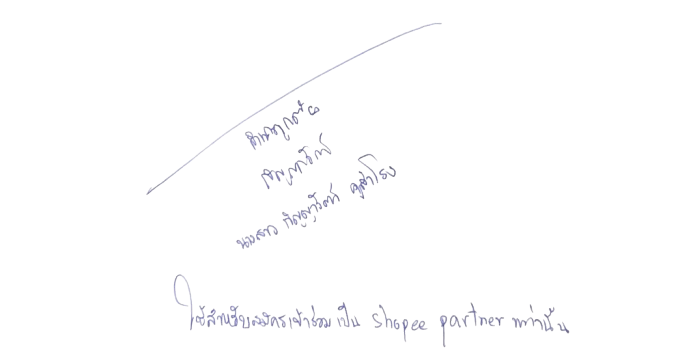 สำเนาถูกต้อง
กัญญารัตน์
นางสาว กัญญารัตน์
ใช้สำหรับสมัครเข้าร่วมเป็น shopee partner เท่านั้น